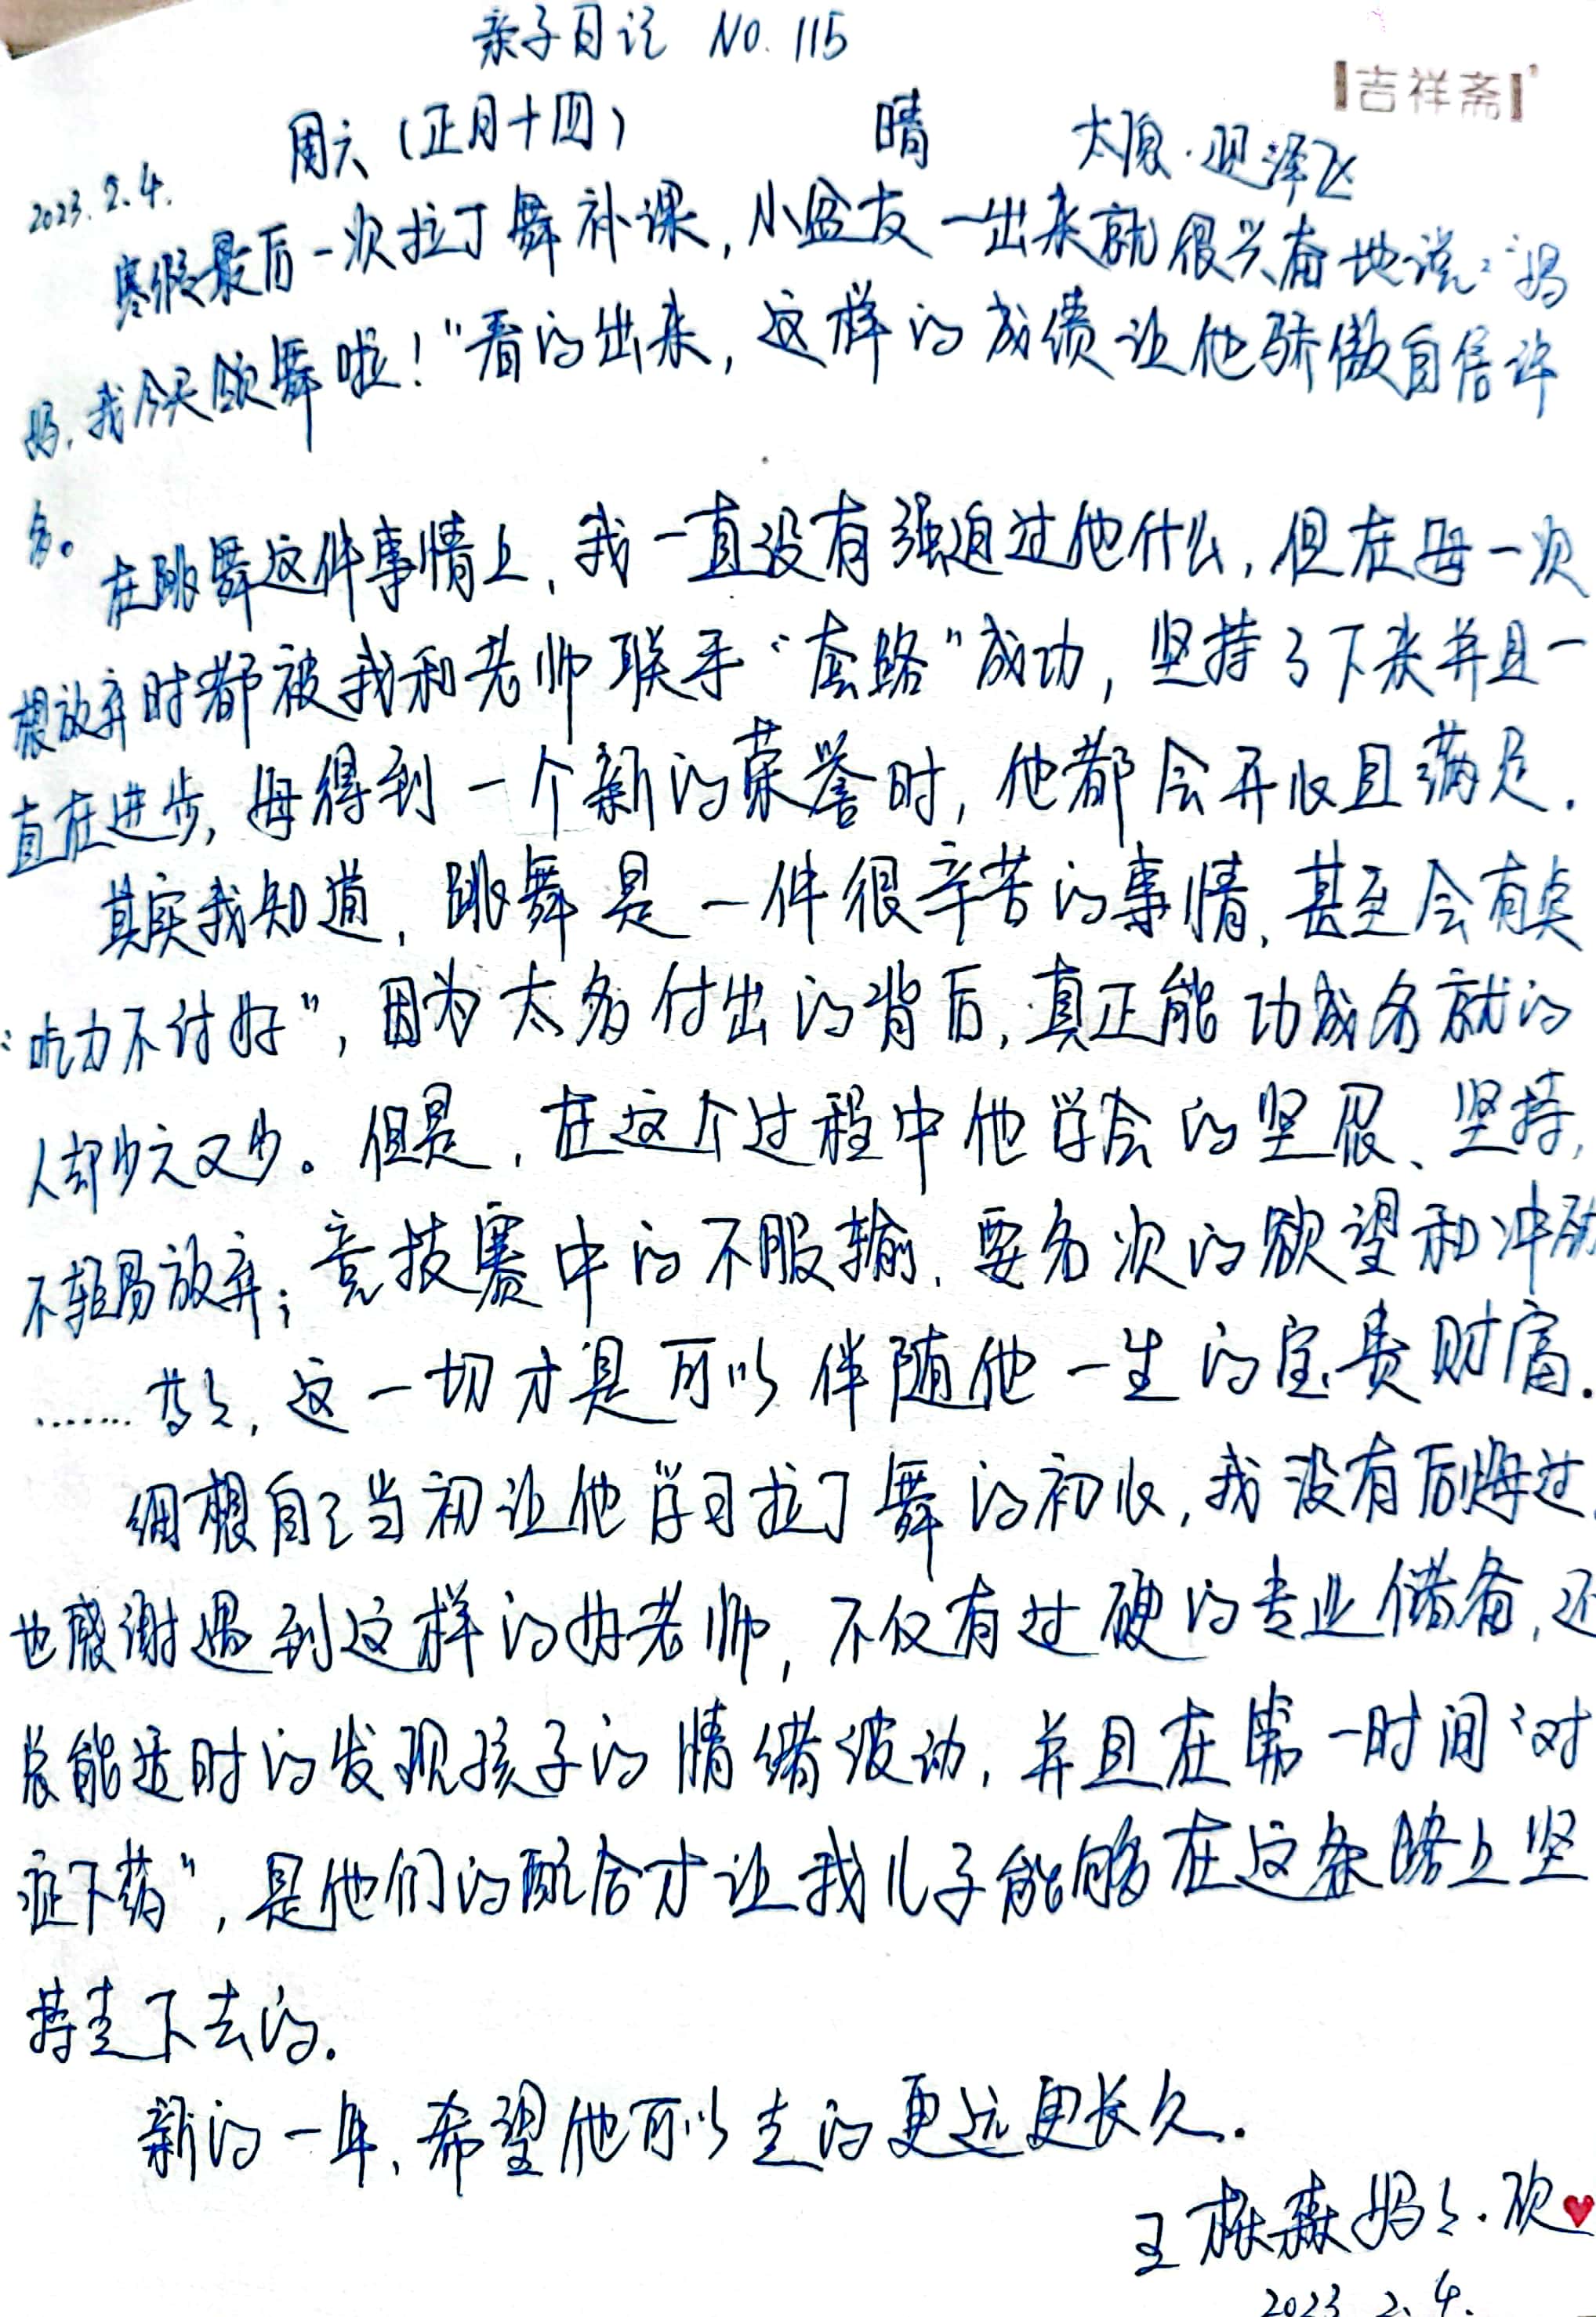 亲子日记 NO. 115
吉祥斋
2023.2.4. 周六(正月十四) 晴 太原·观泽飞
寒假最后一次拉丁舞补课,小盆友一出来就很兴奋地说:“妈
妈,我今天领舞啦!”看的出来,这样的成绩让他骄傲自信许
多。
在跳舞这件事情上,我一直没有强迫过他什么,但在每一次
想放弃时都被我和老师联手“套路”成功,坚持了下来并且一
直在进步,每得到一个新的荣誉时,他都会开心且满足.
其实我知道,跳舞是一件很辛苦的事情,甚至会有点
“吃力不讨好”,因为太多付出的背后,真正能功成名就的
人却少之又少。但是,在这个过程中他学会的坚忍、坚持,
不轻易放弃;竞技赛中的不服输,要名次的欲望和冲劲
……等等,这一切才是可以伴随他一生的宝贵财富.
细想自己当初让他学习拉丁舞的初心,我没有后悔过,
也感谢遇到这样的好老师,不仅有过硬的专业储备,还
总能适时的发现孩子的情绪波动,并且在第一时间“对
症下药”,是他们的配合才让我儿子能够在这条路上坚
持走下去的.
新的一年,希望他可以走的更远更长久.
王栋森妈妈.欣
2023.2.4.